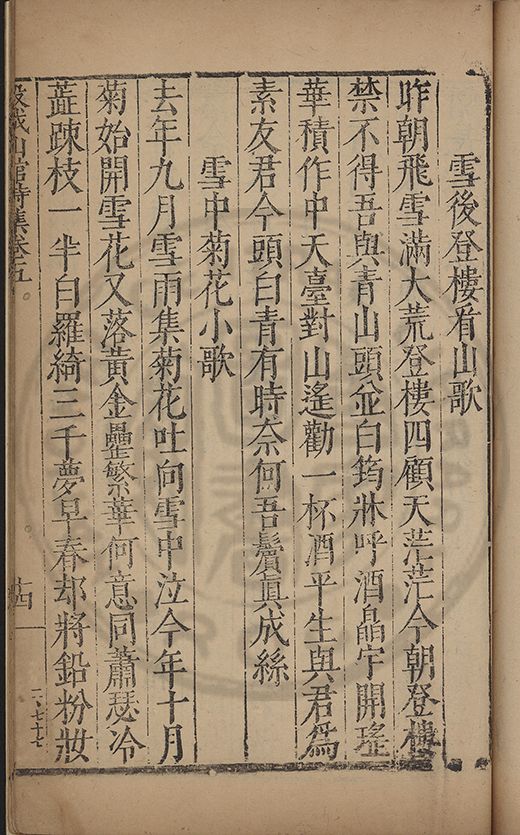 雪後登樓看山歌
昨朝飛雪滿大荒登樓四顧天茫茫今朝登樓
禁不得吾與青山頭並白筠牀呼酒晶宇開瑤
華積作中天臺對山遙勸一杯酒平生與君爲
素友君今頭白青有時奈何吾鬢眞成絲
雪中菊花小歌
去年九月雪雨集菊花吐向雪中泣今年十月
菊始開雪花又落黃金罍繁華何意同蕭瑟冷
蕋疎枝一半白羅綺三千夢早春却將鉛粉妝
山館詩集卷五
十四